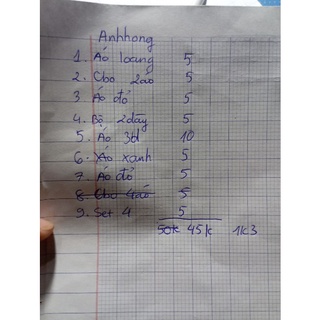 Anhhong
1. Áo loang 5
2. Cbo 2áo 5
3 Áo đỏ 5
4. Bộ 2dây 5
5. Áo 3d 10
6. Xáo xanh 5
7. Áo đỏ 5
8. Cbo 4áo 5
9. Set 4 5
50k 45k 1k3